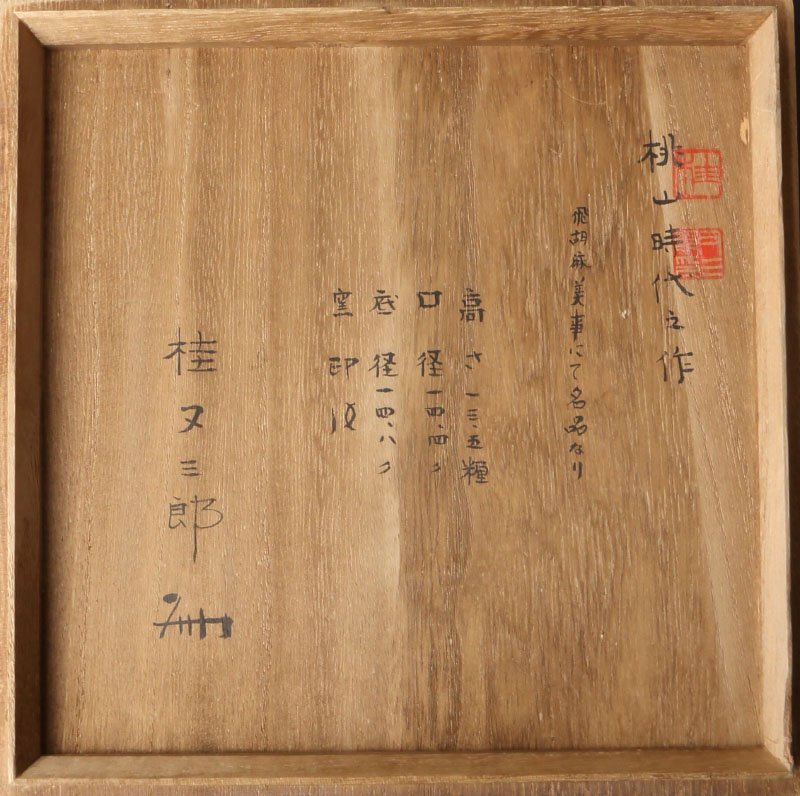 桃山時代之作
飛胡麻美事にて名品なり
高さ一三、五糎
口径一四、四〃
底径一四、八〃
窯印
桂又三郎